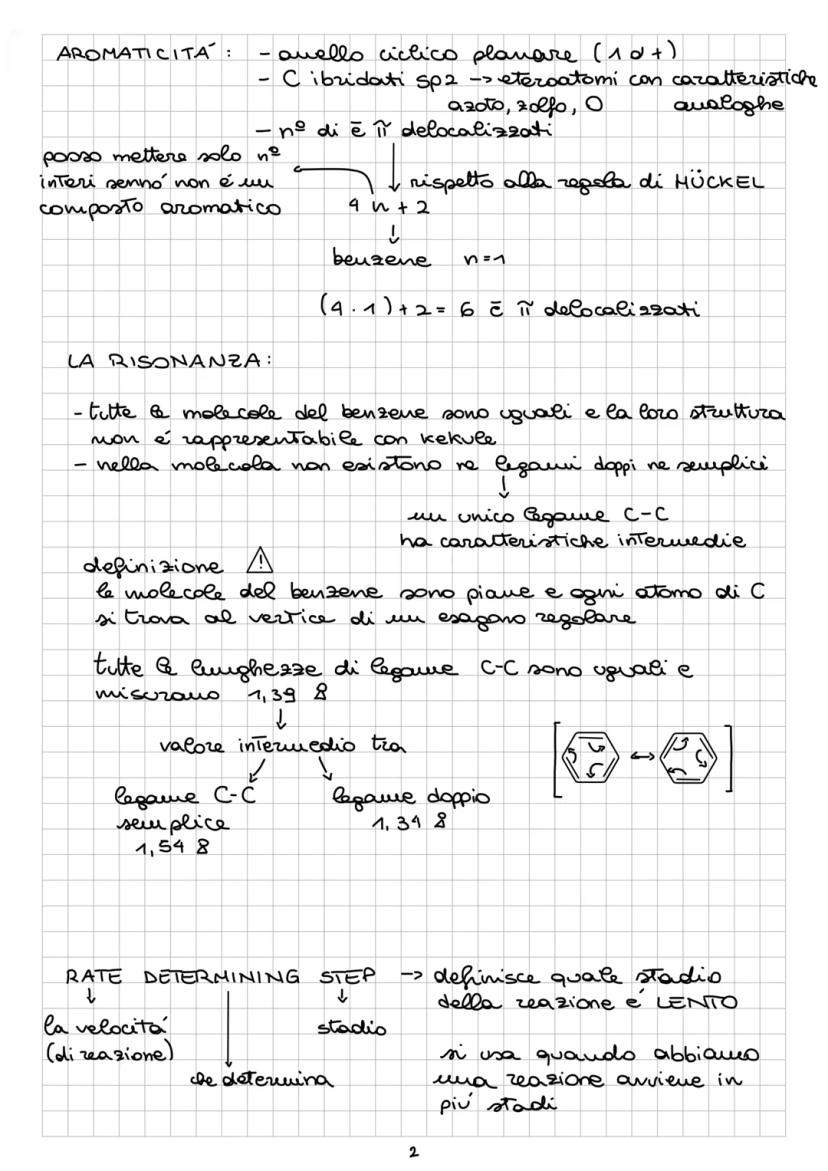 AROMATICITÀ: - anello ciclico planare (1 o +)
- C ibridati sp2 -> eteroatomi con caratteristiche
azoto, zolfo, O analoghe
- n° di ē π delocalizzati
posso mettere solo n°
interi sennó non é un
composto aromatico
↓ rispetto alla regola di HÜCKEL
4 n + 2
↓
benzene n=1
(4·1)+2 = 6 ē π delocalizzati
LA RISONANZA:
- tutte le molecole del benzene sono uguali e la loro struttura
non é rappresentabile con kekule
- nella molecola non esistono ne legami doppi ne semplici
↓
un unico legame C-C
ha caratteristiche intermedie
definizione ⚠
le molecole del benzene sono piane e ogni atomo di C
si trova al vertice di un esagono regolare
tutte le lunghezze di legame C-C sono uguali e
misurano 1,39 Å
↓
valore intermedio tra
legame C-C legame doppio
semplice 1,34 Å
1,54 Å
RATE DETERMINING STEP -> definisce quale stadio
della reazione é LENTO
la velocitá stadio
(di reazione)
che determina
si usa quando abbiamo
una reazione avviene in
piú stadi
2